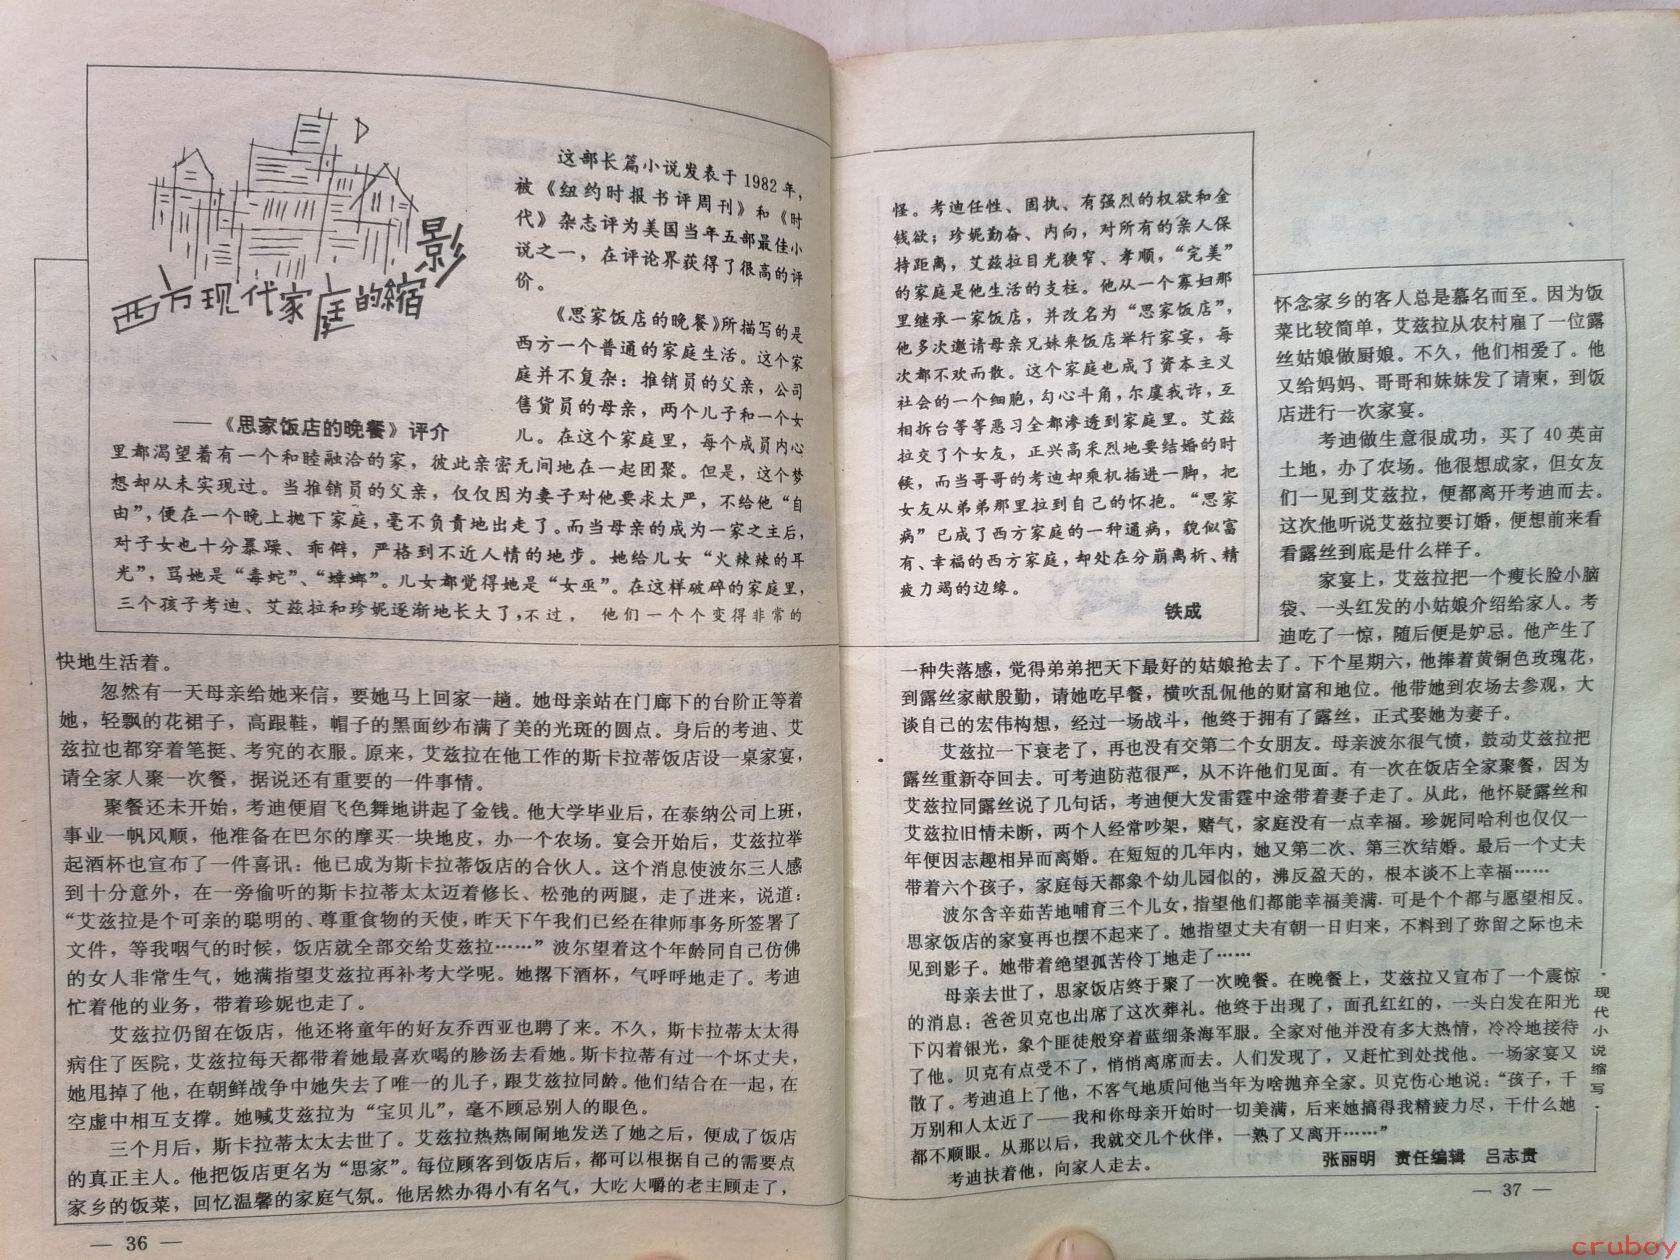 西方现代家庭的縮影
——《思家饭店的晚餐》评介
这部长篇小说发表于1982年，
被《纽约时报书评周刊》和《时
代》杂志评为美国当年五部最佳小
说之一，在评论界获得了很高的评
价。
《思家饭店的晚餐》所描写的是
西方一个普通的家庭生活。这个家
庭并不复杂：推销员的父亲，公司
售货员的母亲，两个儿子和一个女
儿。在这个家庭里，每个成员内心
里都渴望着有一个和睦融洽的家，彼此亲密无间地在一起团聚。但是，这个梦
想却从未实现过。当推销员的父亲，仅仅因为妻子对他要求太严，不给他“自
由”，便在一个晚上抛下家庭，毫不负责地出走了。而当母亲的成为一家之主后，
对子女也十分暴躁、乖僻，严格到不近人情的地步。她给儿女“火辣辣的耳
光”，骂她是“毒蛇”、“蟑螂”。儿女都觉得她是“女巫”。在这样破碎的家庭里，
三个孩子考迪、艾兹拉和珍妮逐渐地长大了，不过，他们一个个变得非常的
快地生活着。
忽然有一天母亲给她来信，要她马上回家一趟。她母亲站在门廊下的台阶正等着
她，轻飘的花裙子，高跟鞋，帽子的黑面纱布满了美的光斑的圆点。身后的考迪、艾
兹拉也都穿着笔挺、考究的衣服。原来，艾兹拉在他工作的斯卡拉蒂饭店设一桌家宴，
请全家人聚一次餐，据说还有重要的一件事情。
聚餐还未开始，考迪便眉飞色舞地讲起了金钱。他大学毕业后，在泰纳公司上班，
事业一帆风顺，他准备在巴尔的摩买一块地皮，办一个农场。宴会开始后，艾兹拉举
起酒杯也宣布了一件喜讯：他已成为斯卡拉蒂饭店的合伙人。这个消息使波尔三人感
到十分意外，在一旁偷听的斯卡拉蒂太太迈着修长、松弛的两腿，走了进来，说道：
“艾兹拉是个可亲的聪明的、尊重食物的天使，昨天下午我们已经在律师事务所签署了
文件，等我咽气的时候，饭店就全部交给艾兹拉……”波尔望着这个年龄同自己仿佛
的女人非常生气，她满指望艾兹拉再补考大学呢。她撂下酒杯，气呼呼地走了。考迪
忙着他的业务，带着珍妮也走了。
艾兹拉仍留在饭店，他还将童年的好友乔西亚也聘了来。不久，斯卡拉蒂太太得
病住了医院，艾兹拉每天都带着她最喜欢喝的胗汤去看她。斯卡拉蒂有过一个坏丈夫，
她甩掉了他，在朝鲜战争中她失去了唯一的儿子，跟艾兹拉同龄。他们结合在一起，在
空虚中相互支撑。她喊艾兹拉为“宝贝儿”，毫不顾忌别人的眼色。
三个月后，斯卡拉蒂太太去世了。艾兹拉热热闹闹地发送了她之后，便成了饭店
的真正主人。他把饭店更名为“思家”。每位顾客到饭店后，都可以根据自己的需要点
家乡的饭菜，回忆温馨的家庭气氛。他居然办得小有名气，大吃大嚼的老主顾走了，
— 36 —
怪。考迪任性、固执、有强烈的权欲和金
钱欲；珍妮勤奋、内向，对所有的亲人保
持距离，艾兹拉目光狭窄、孝顺，“完美”
的家庭是他生活的支柱。他从一个寡妇那
里继承一家饭店，并改名为“思家饭店”，
他多次邀请母亲兄妹来饭店举行家宴，每
次都不欢而散。这个家庭也成了资本主义
社会的一个细胞，勾心斗角，尔虞我诈，互
相拆台等等恶习全都渗透到家庭里。艾兹
拉交了个女友，正兴高采烈地要结婚的时
候，而当哥哥的考迪却乘机插进一脚，把
女友从弟弟那里拉到自己的怀抱。“思家
病”已成了西方家庭的一种通病，貌似富
有、幸福的西方家庭，却处在分崩离析、精
疲力竭的边缘。
铁成
怀念家乡的客人总是慕名而至。因为饭
菜比较简单，艾兹拉从农村雇了一位露
丝姑娘做厨娘。不久，他们相爱了。他
又给妈妈、哥哥和妹妹发了请柬，到饭
店进行一次家宴。
考迪做生意很成功，买了40英亩
土地，办了农场。他很想成家，但女友
们一见到艾兹拉，便都离开考迪而去。
这次他听说艾兹拉要订婚，便想前来看
看露丝到底是什么样子。
家宴上，艾兹拉把一个瘦长脸小脑
袋、一头红发的小姑娘介绍给家人。考
迪吃了一惊，随后便是妒忌。他产生了
一种失落感，觉得弟弟把天下最好的姑娘抢去了。下个星期六，他捧着黄铜色玫瑰花，
到露丝家献殷勤，请她吃早餐，横吹乱侃他的财富和地位。他带她到农场去参观，大
谈自己的宏伟构想，经过一场战斗，他终于拥有了露丝，正式娶她为妻子。
艾兹拉一下衰老了，再也没有交第二个女朋友。母亲波尔很气愤，鼓动艾兹拉把
露丝重新夺回去。可考迪防范很严，从不许他们见面。有一次在饭店全家聚餐，因为
艾兹拉同露丝说了几句话，考迪便大发雷霆中途带着妻子走了。从此，他怀疑露丝和
艾兹拉旧情未断，两个人经常吵架，赌气，家庭没有一点幸福。珍妮同哈利也仅仅一
年便因志趣相异而离婚。在短短的几年内，她又第二次、第三次结婚。最后一个丈夫
带着六个孩子，家庭每天都象个幼儿园似的，沸反盈天的，根本谈不上幸福……
波尔含辛茹苦地哺育三个儿女，指望他们都能幸福美满．可是个个都与愿望相反。
思家饭店的家宴再也摆不起来了。她指望丈夫有朝一日归来，不料到了弥留之际也未
见到影子。她带着绝望孤苦伶丁地走了……
母亲去世了，思家饭店终于聚了一次晚餐。在晚餐上，艾兹拉又宣布了一个震惊
的消息：爸爸贝克也出席了这次葬礼。他终于出现了，面孔红红的，一头白发在阳光
下闪着银光，象个匪徒般穿着蓝细条海军服。全家对他并没有多大热情，冷冷地接待
了他。贝克有点受不了，悄悄离席而去。人们发现了，又赶忙到处找他。一场家宴又
散了。考迪追上了他，不客气地质问他当年为啥抛弃全家。贝克伤心地说：“孩子，千
万别和人太近了——我和你母亲开始时一切美满，后来她搞得我精疲力尽，干什么她
都不顺眼。从那以后，我就交几个伙伴，一熟了又离开……”
考迪扶着他，向家人走去。
张丽明 责任编辑 吕志贵
·现代小说缩写·
— 37 —
cruboy